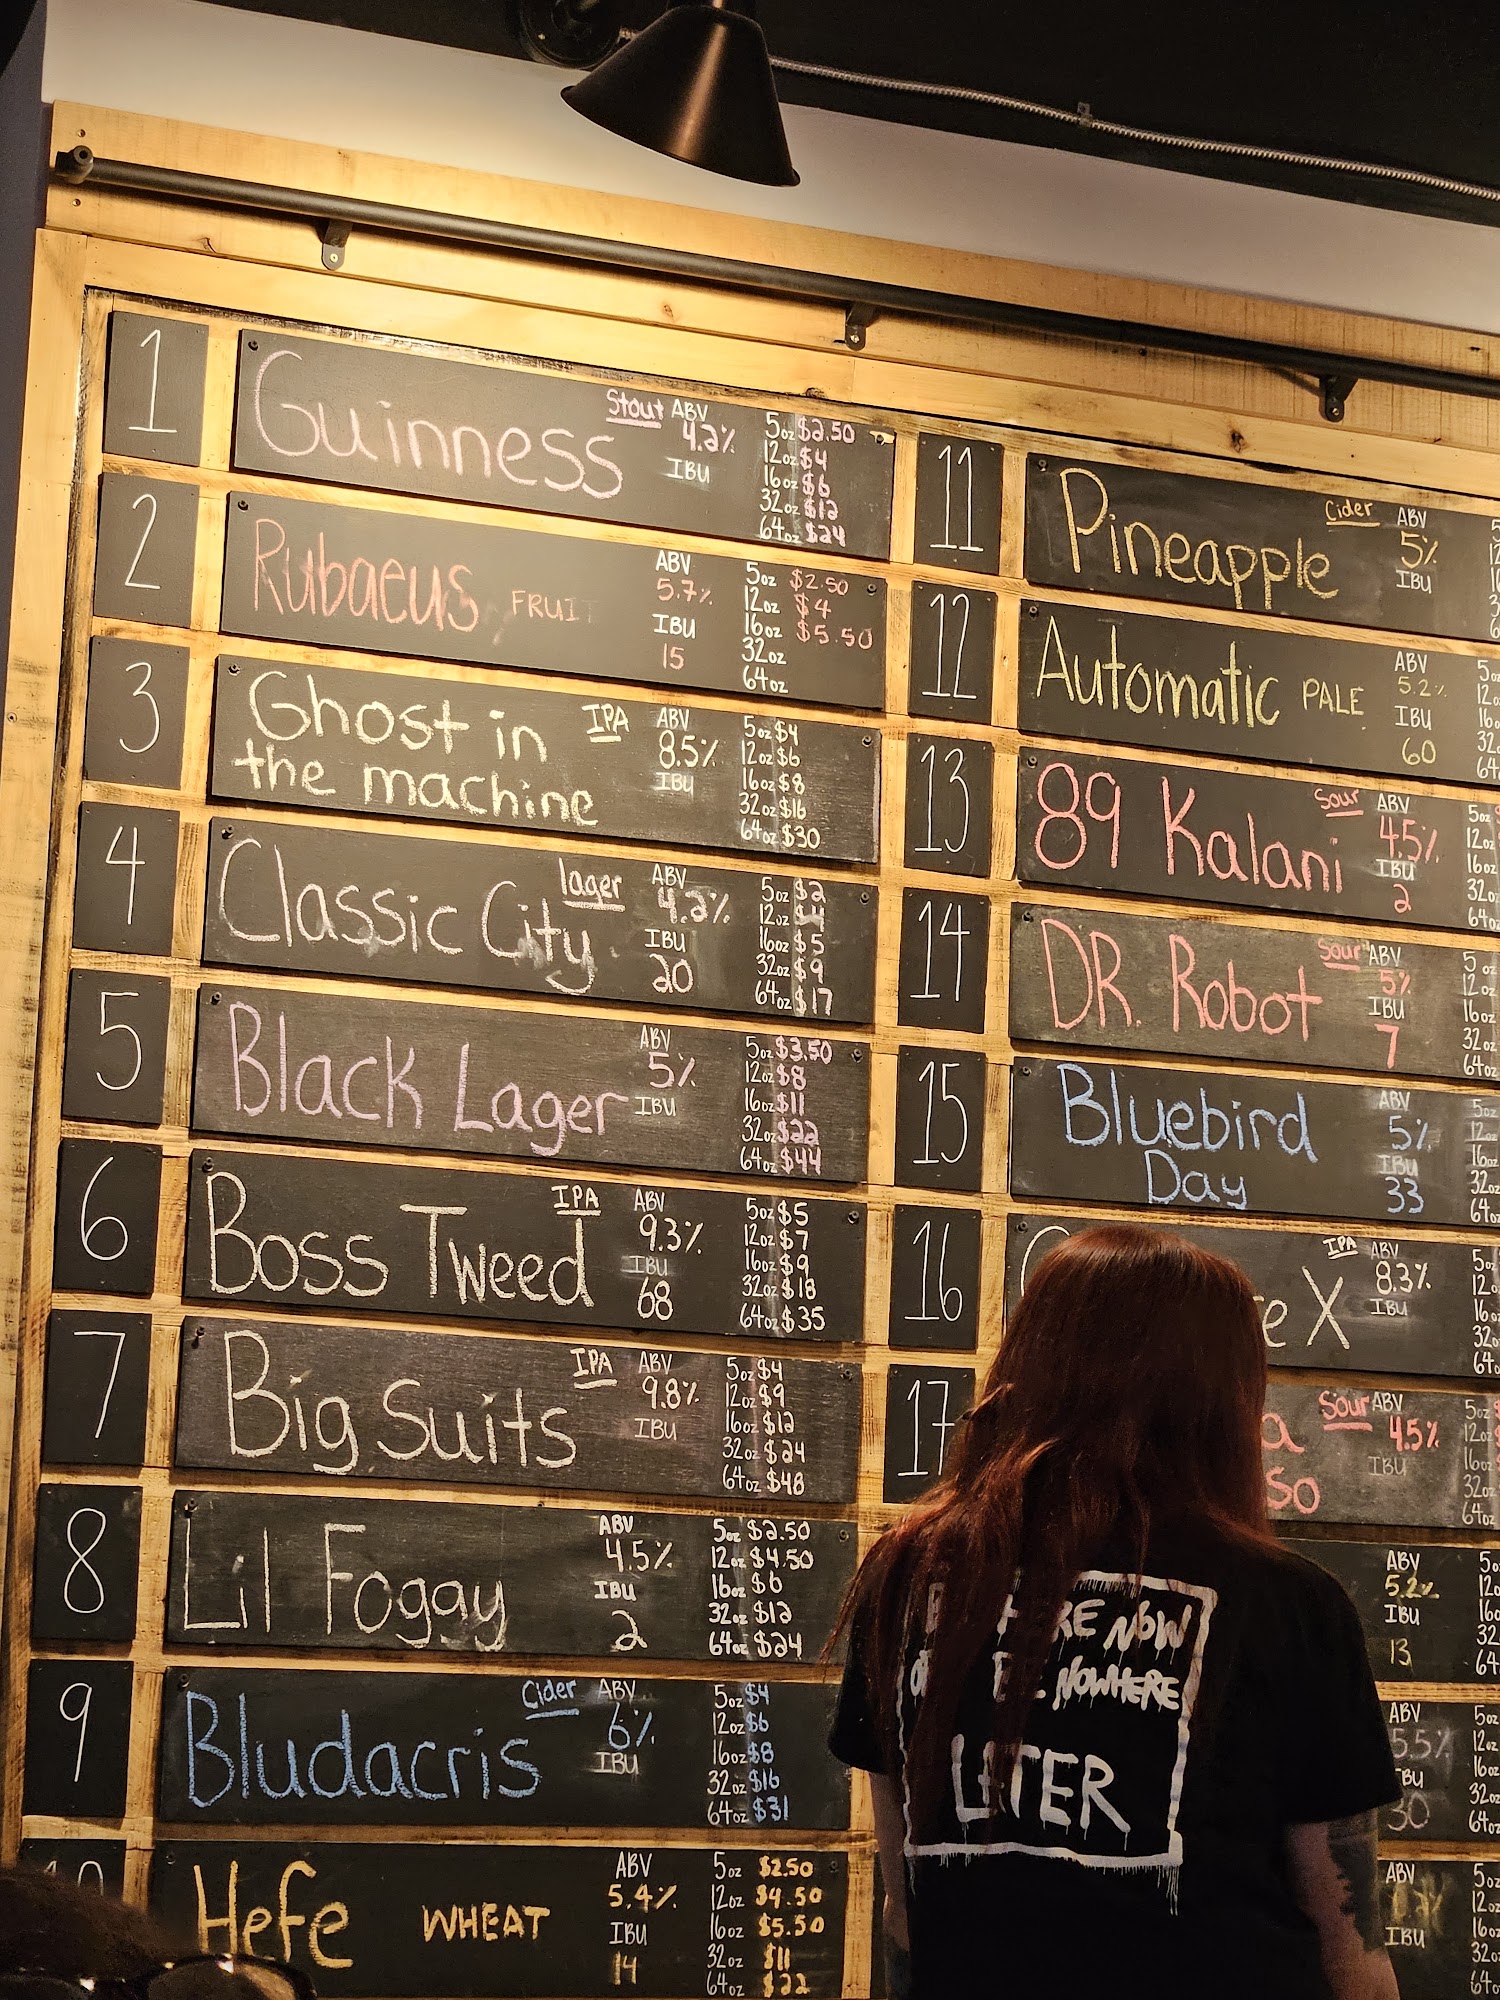 1
Guinness
Stout
ABV
4.2%
IBU
5oz $2.50
12oz $4
16oz $6
32oz $12
64oz $24
2
Rubaeus FRUIT
ABV
5.7%
IBU
15
5oz $2.50
12oz $4
16oz $5.50
32oz
64oz
3
Ghost in
the machine
IPA
ABV
8.5%
IBU
5oz $4
12oz $6
16oz $8
32oz $16
64oz $30
4
Classic City
lager
ABV
4.2%
IBU
20
5oz $2
12oz $4
16oz $5
32oz $9
64oz $17
5
Black Lager
ABV
5%
IBU
5oz $3.50
12oz $8
16oz $11
32oz $22
64oz $44
6
Boss Tweed
IPA
ABV
9.3%
IBU
68
5oz $5
12oz $7
16oz $9
32oz $18
64oz $35
7
Big Suits
IPA
ABV
9.8%
IBU
5oz $4
12oz $9
16oz $12
32oz $24
64oz $48
8
Lil Fogay
ABV
4.5%
IBU
2
5oz $2.50
12oz $4.50
16oz $6
32oz $12
64oz $24
9
Bludacris
Cider
ABV
6%
IBU
5oz $4
12oz $6
16oz $8
32oz $16
64oz $31
Hefe WHEAT
ABV
5.4%
IBU
14
5oz $2.50
12oz $4.50
16oz $5.50
32oz $11
64oz $22
11
Pineapple
Cider
ABV
5%
IBU
12
Automatic PALE
ABV
5.2%
IBU
60
13
89 Kalani
Sour
ABV
4.5%
IBU
2
5oz
12oz
16oz
32oz
64oz
14
DR. Robot
Sour
ABV
5%
IBU
7
5oz
12oz
16oz
32oz
64oz
15
Bluebird
Day
ABV
5%
IBU
33
5oz
12oz
16oz
32oz
64oz
16
X
IPA
ABV
8.3%
IBU
17
Sour
ABV
4.5%
IBU
5oz
12oz
16oz
32oz
64oz
ABV
5.2%
IBU
13
ABV
5.5%
IBU
30
5oz
12oz
16oz
32oz
64oz
ABV
IBU
5oz
12oz
16oz
32oz
64oz
HERE NOW
NOWHERE
LATER